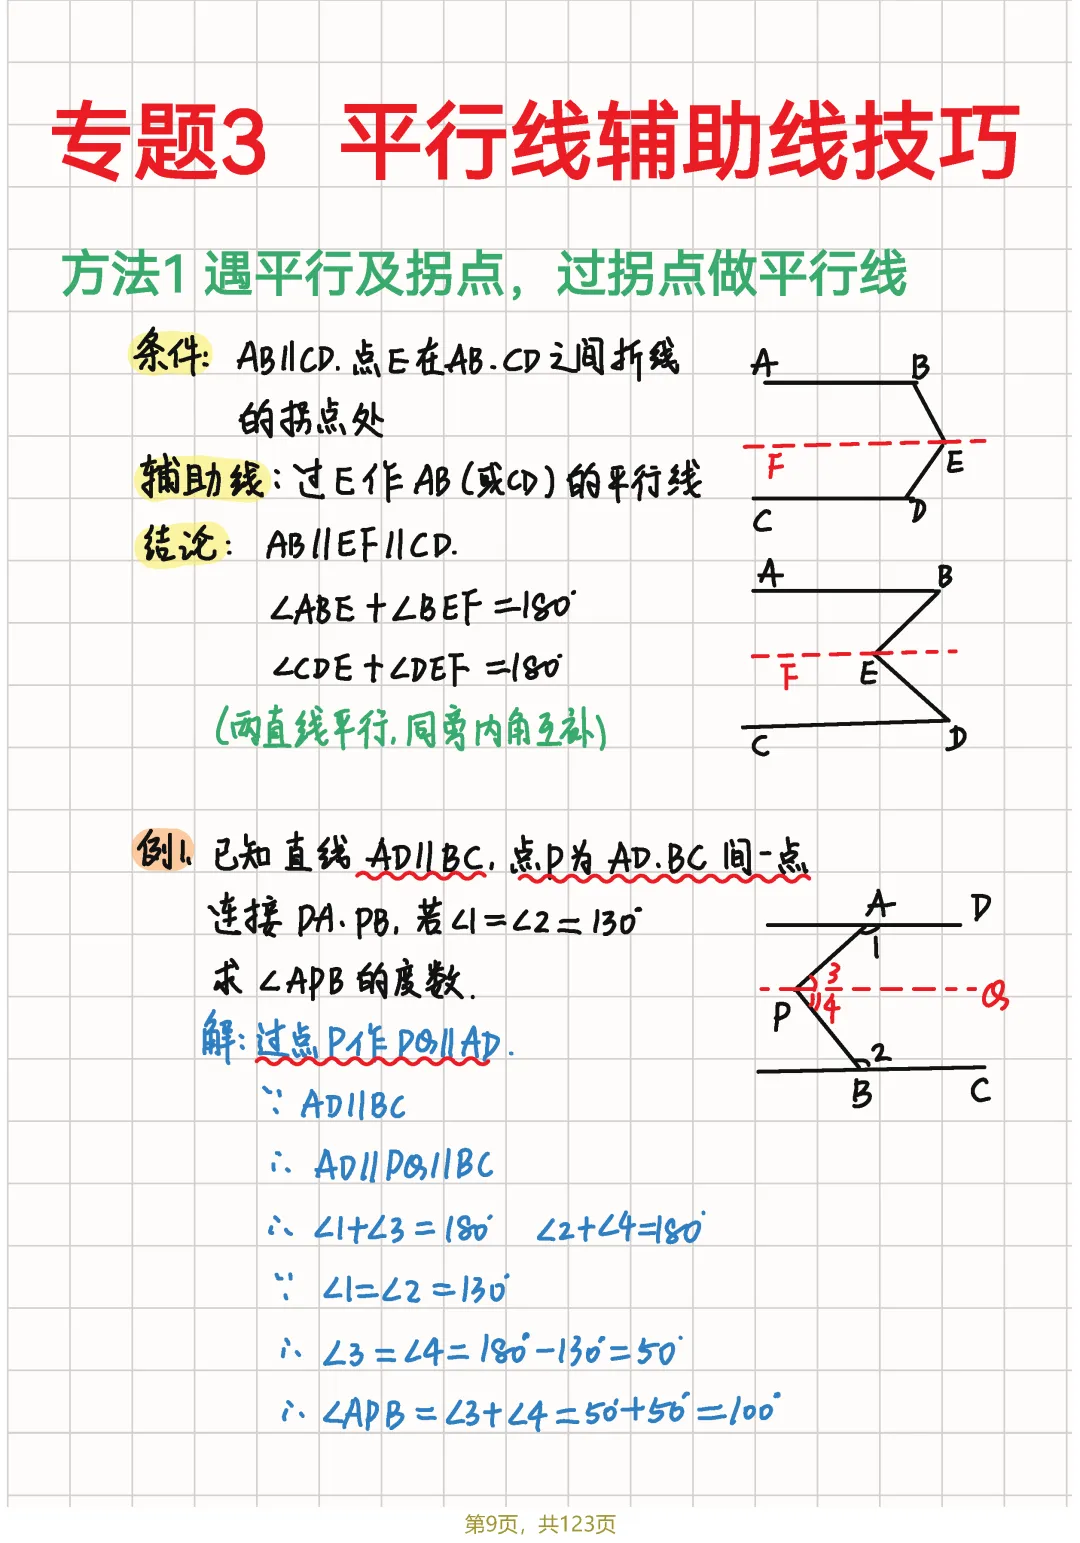 专题3 平行线辅助线技巧
方法1 遇平行及拐点，过拐点做平行线
条件: AB∥CD.点E在AB.CD之间折线
的拐点处
辅助线:过E作AB(或CD)的平行线
结论: AB∥EF∥CD.
∠ABE+∠BEF=180°
∠CDE+∠DEF=180°
(两直线平行,同旁内角互补)
A B
F E
C D
A B
F E
C D
例1. 已知直线AD∥BC,点P为AD.BC间一点
连接PA.PB,若∠1=∠2=130°
求∠APB的度数.
解:过点P作PQ∥AD.
∵ AD∥BC
∴ AD∥PQ∥BC
∴ ∠1+∠3=180° ∠2+∠4=180°
∵ ∠1=∠2=130°
∴ ∠3=∠4=180°-130°=50°
∴ ∠APB=∠3+∠4=50°+50°=100°
A D
1
3
P 4 Q
2
B C
第9页，共123页